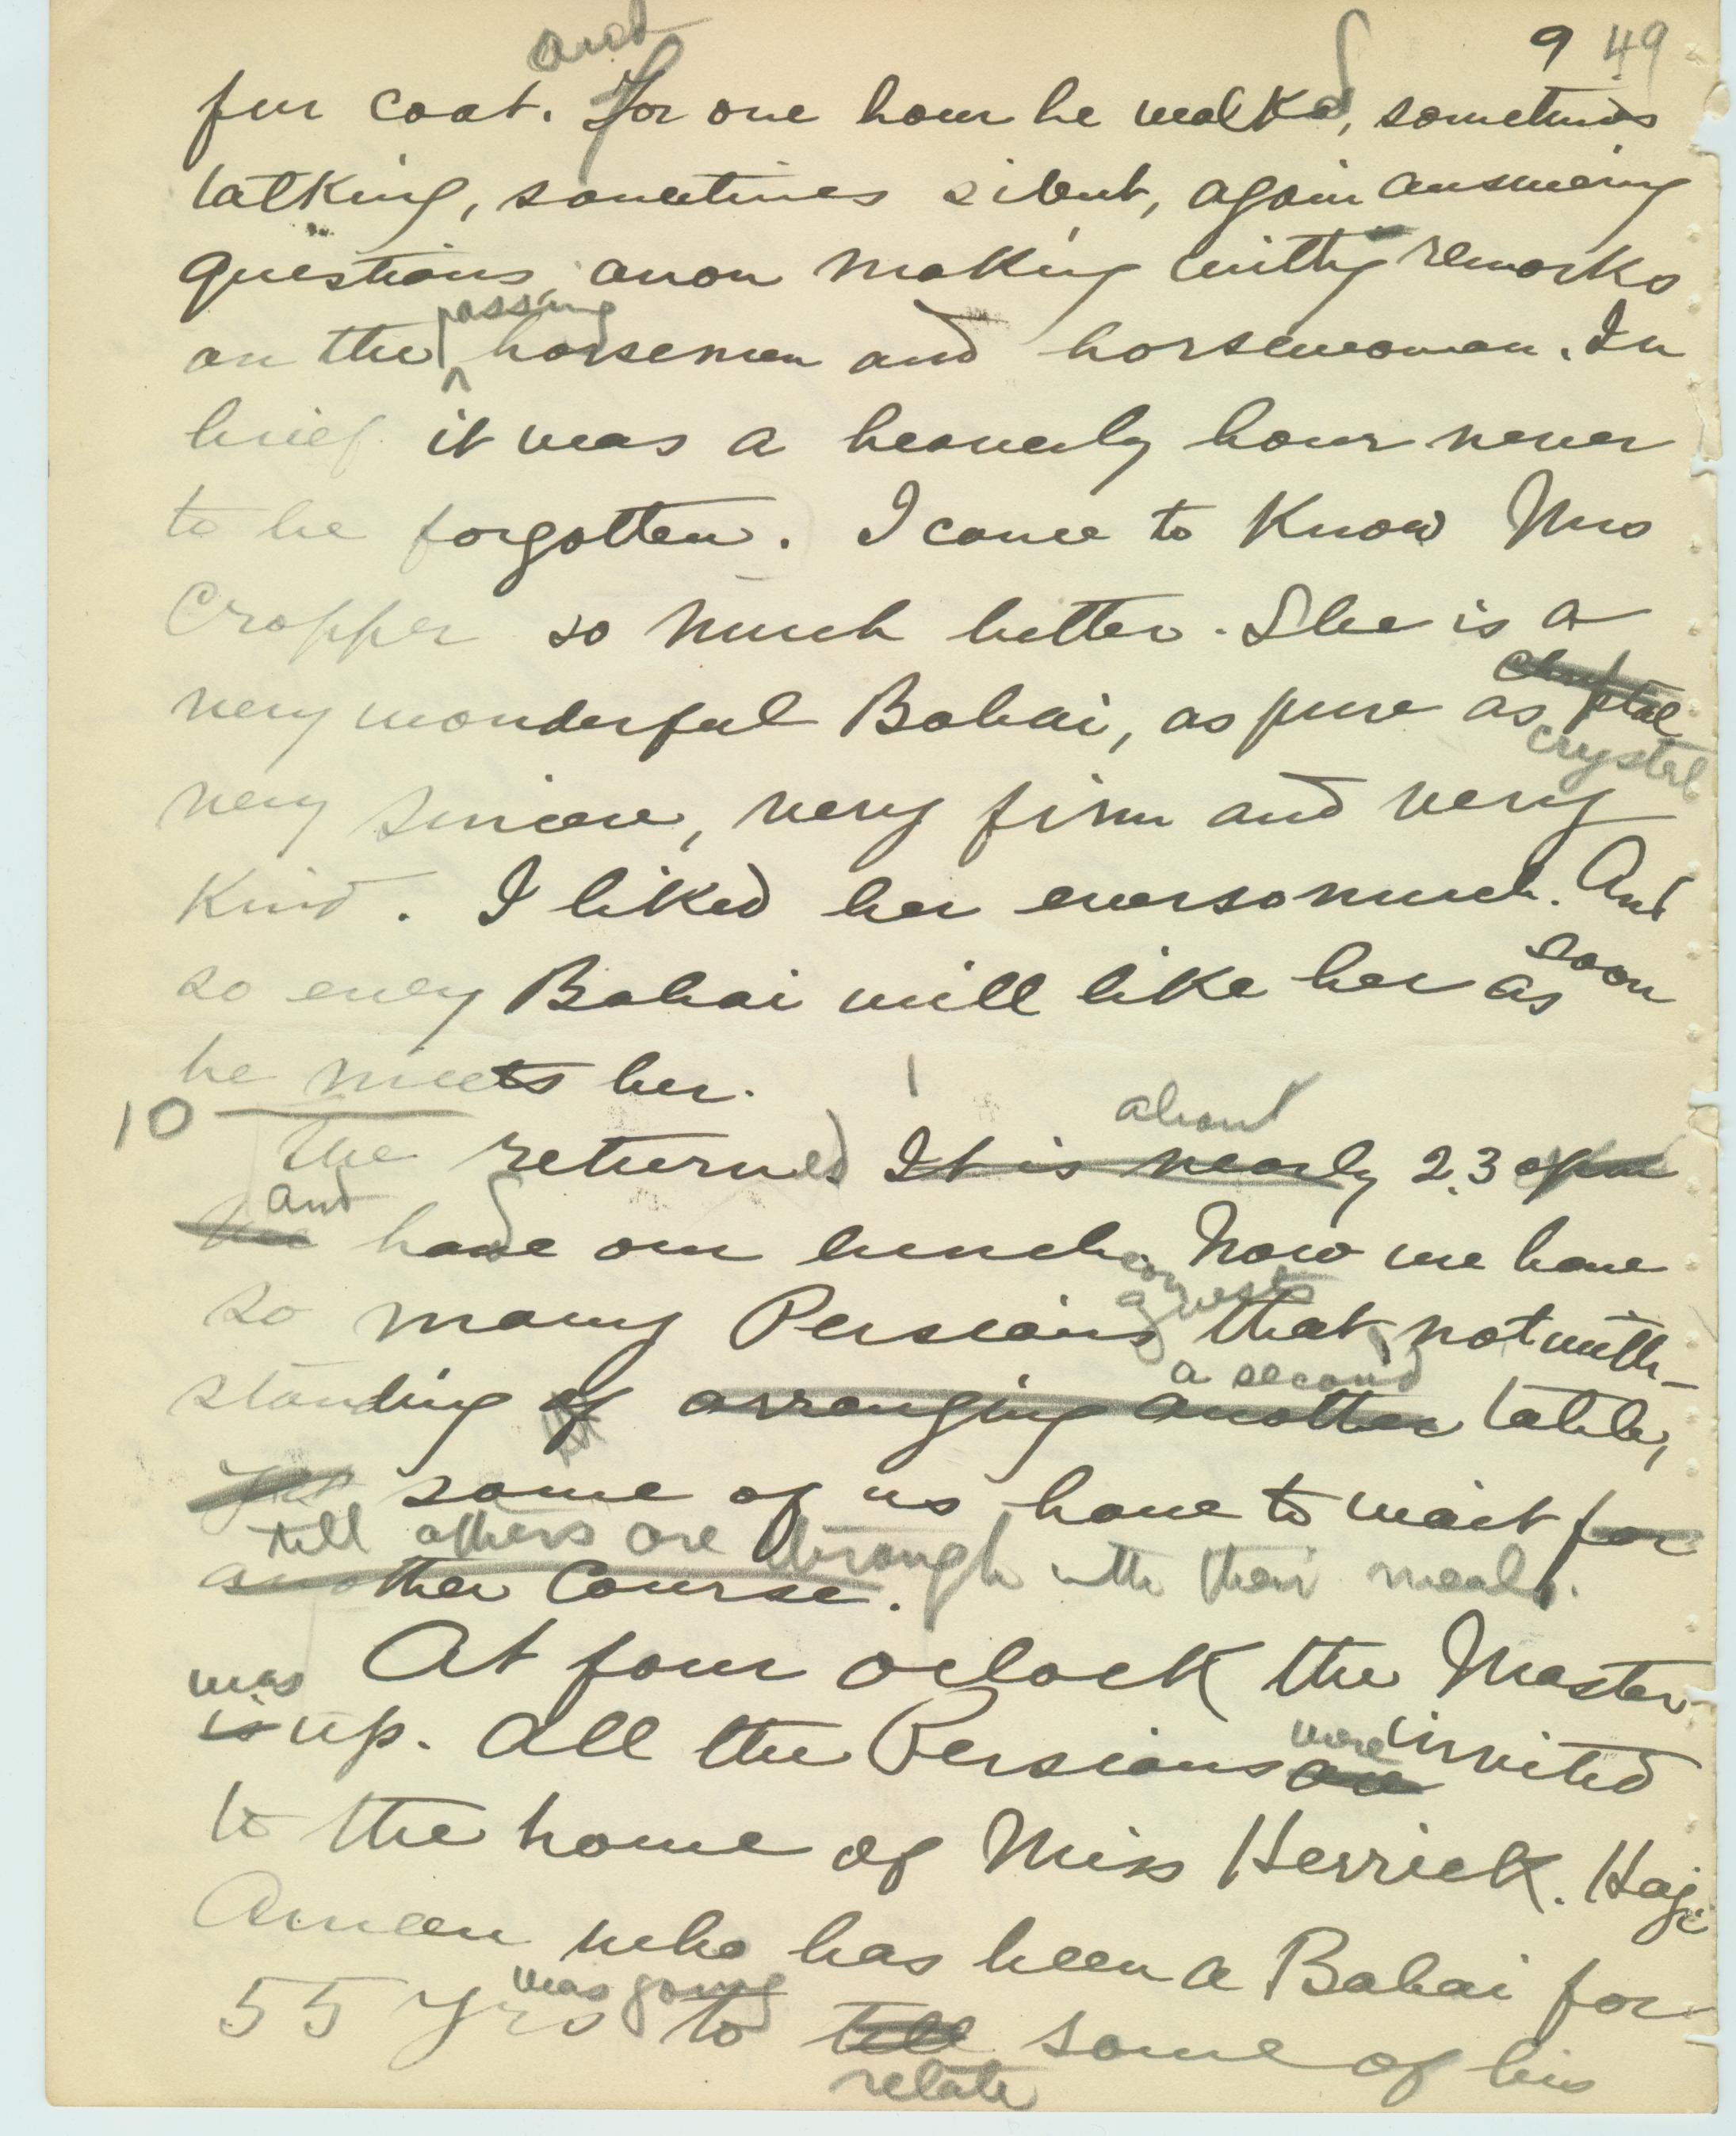 9 49
and
fur coat. For one hour he walked, sometimes
talking, sometimes silent, again answering
questions, anon making witty remarks
passing
on the horsemen and horsewoman. In
brief it was a heavenly hour never
to be forgotten. I came to know Mrs
Cropper so much better. She is a
very wonderful Bahai, as pure as
crystal
very sincere, very firm and very
kind. I liked her eversomuch. And
so every Bahai will like her as soon
he meets her.
10
about
The returned It is nearly 2.30 pm
and
have our lunch. Now we have
guests
so many Persians that, notwith-
a second
standing of arranging another table,
yet some of us have to wait for
till others are through with their meals.
another course.
At four oclock the Master
was
is up. All the Persians are invited
were
to the home of Miss Herrick. Haji
Ameen who has been a Bahai for
was going
55 yrs to tell some of his
relate